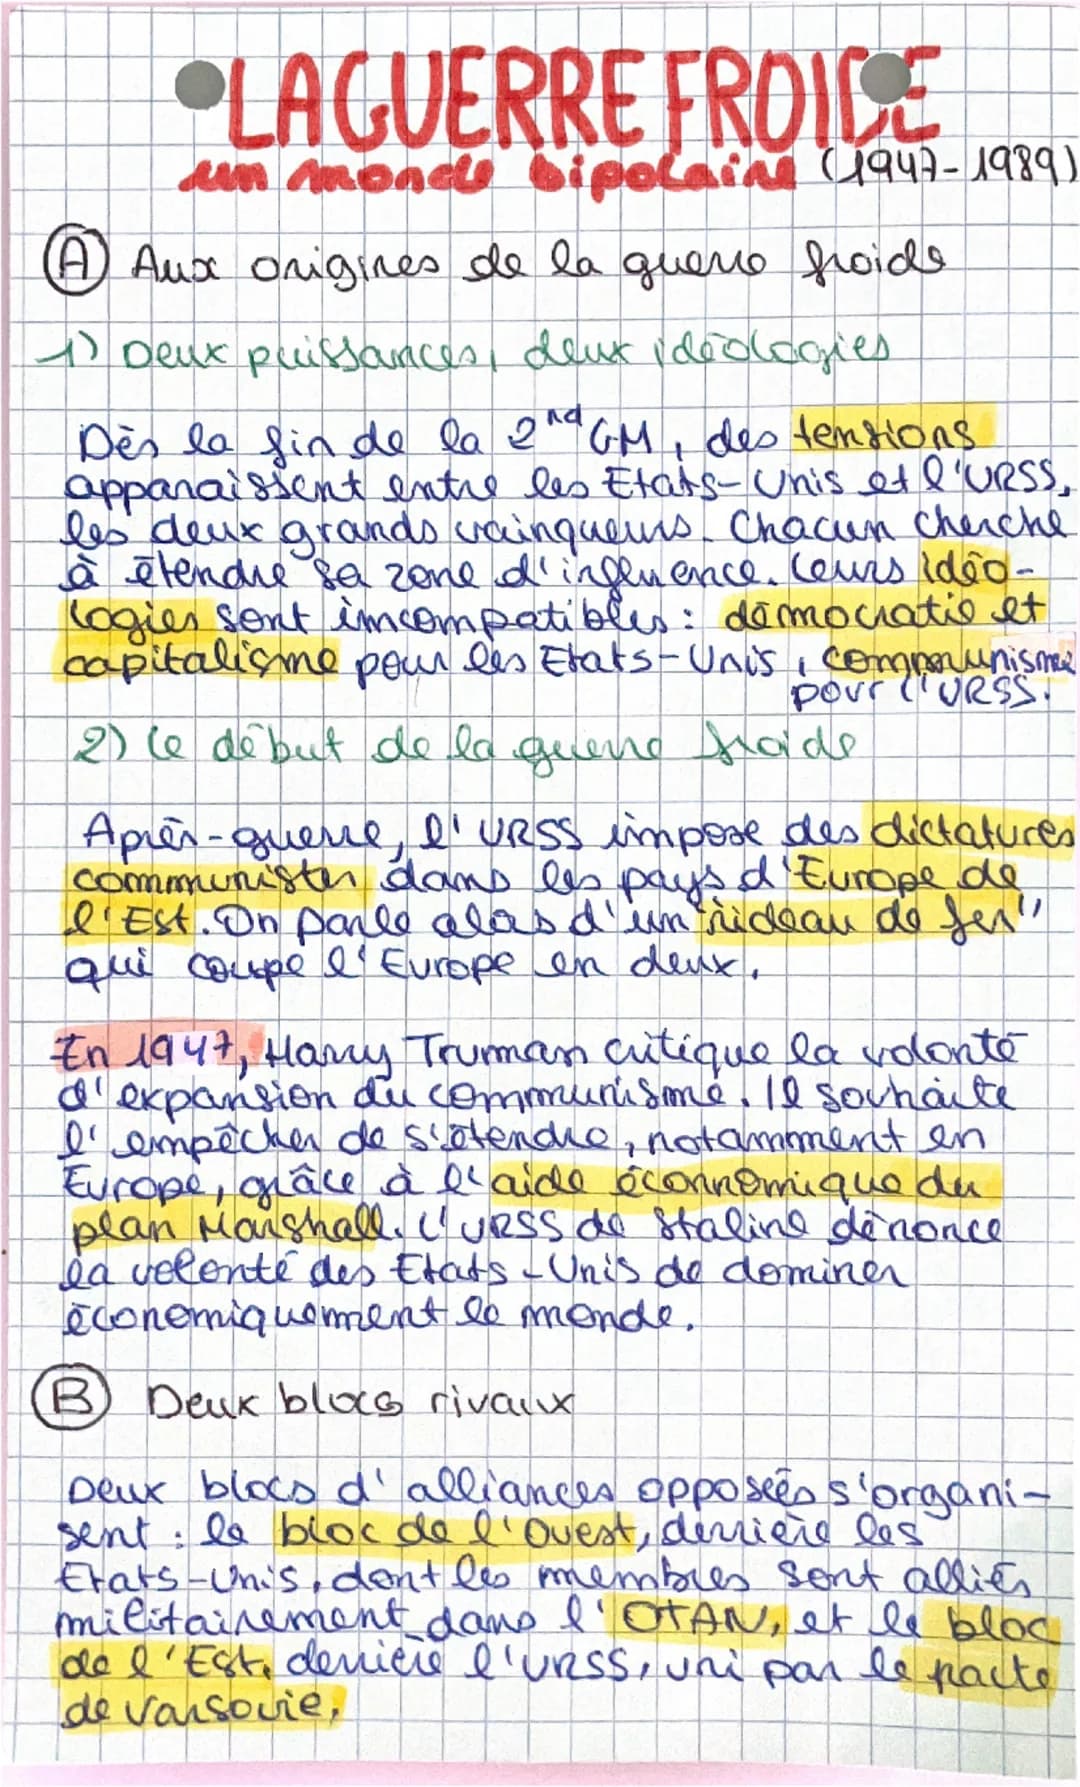 LA GUERRE FROIDE
un monde bipolaire (1947-1989)
A Aux origines de la guerre froide
1) Deux puissances, deux idéologies
Dès la fin de la 2nd GM, des tensions
apparaissent entre les Etats-Unis et l'URSS,
les deux grands vainqueurs. Chacun cherche
à étendre sa zone d'influence. Leurs idéo-
logies sont imcompatibles : démocratie et
capitalisme pour les Etats-Unis, communisme
pour l'URSS.
2) Le début de la guerre froide
Après-guerre, l'URSS impose des dictatures
communistes dans les pays d'Europe de
l'Est. On parle alors d'un "rideau de fer"
qui coupe l'Europe en deux.
En 1947, Harry Truman critique la volonté
d'expansion du communisme. Il souhaite
l'empêcher de s'étendre, notamment en
Europe, grâce à l'aide éconnomique du
plan Marshall. L'URSS de Staline dénonce
la volonté des Etats-Unis de dominer
économiquement le monde.
B Deux blocs rivaux
Deux blocs d'alliances opposées s'organi-
sent : le bloc de l'Ouest, derrière les
Etats-Unis, dont les membres sont alliés
militairement dans l'OTAN, et le bloc
de l'Est, derrière l'URSS, uni par le pacte
de Varsovie.